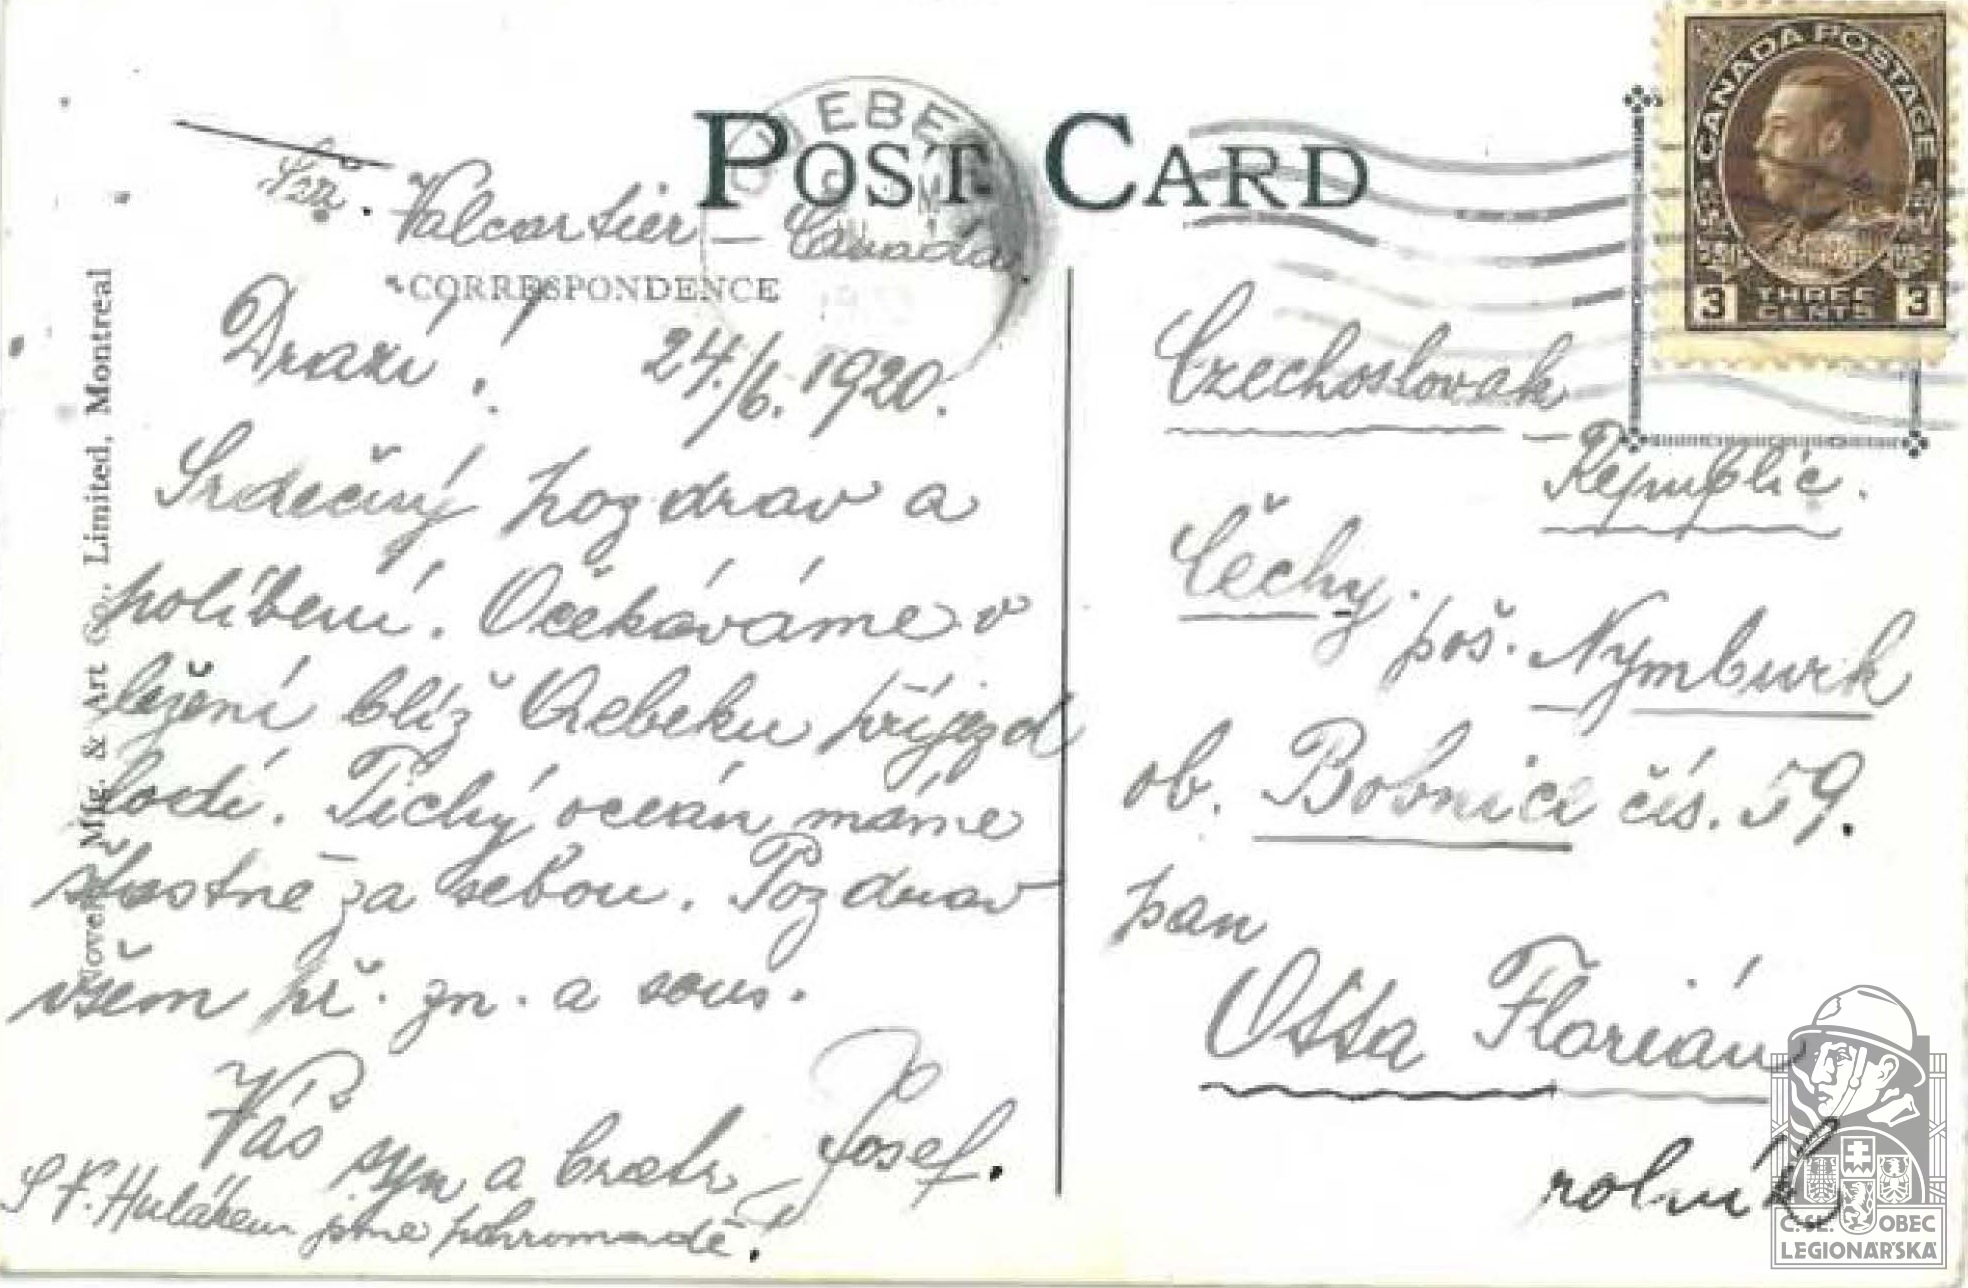 POST CARD
QUEBEC
CANADA POSTAGE
3 THREE CENTS 3
Valcartier – Canada.
CORRESPONDENCE
Drazí! 24./6. 1920.
Srdečný pozdrav a
políbení. Očekáváme v
ležení blíž Quebeku příjezd
lodí. Tichý oceán máme
šťastně za sebou. Pozdrav
všem př. zn. a sous.
Váš syn a bratr Josef.
S F. Hulákem jsme pohromadě!
Novelty Mfg. & Art Co., Limited, Montreal
Czechoslovak –
Republic.
Čechy.
poš. Nymburk
ob. Bobnice čís. 59.
pan
Otta Florián
rolník
Č.SL. OBEC
LEGIONÁŘSKÁ